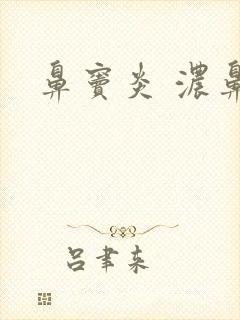 鼻竇炎 濃鼻
吕聿来